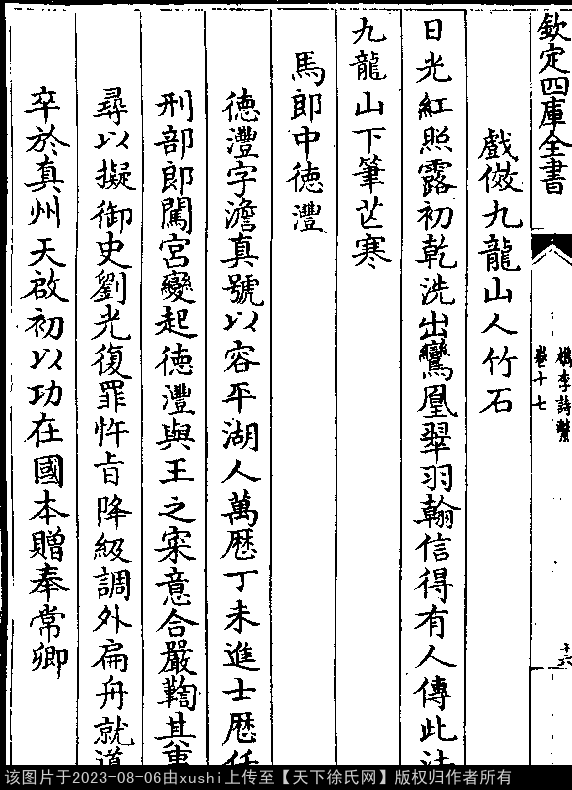 欽定四庫全書
檇李詩繫
卷十七
十六
戲倣九龍山人竹石
日光紅照露初乾洗出鸞凰翠羽翰信得有人傳此法
九龍山下筆芒寒
馬郎中德灃
德灃字澹真號以容平湖人萬歷丁未進士歷任
刑部郎闖宮變起德灃與王之寀意合嚴鞫其事
尋以擬御史劉光復罪忤旨降級調外扁舟就道
卒於真州天啟初以功在國本贈奉常卿
该图片于2023-08-06由xushi上传至【天下徐氏网】版权归作者所有